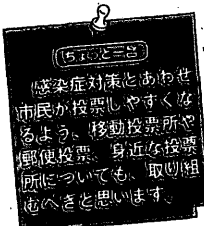 ちょっと一言
感染症対策とあわせ
市民が投票しやすくな
るよう、移動投票所や
郵便投票、身近な投票
所についても、取り組
むべきと思います。